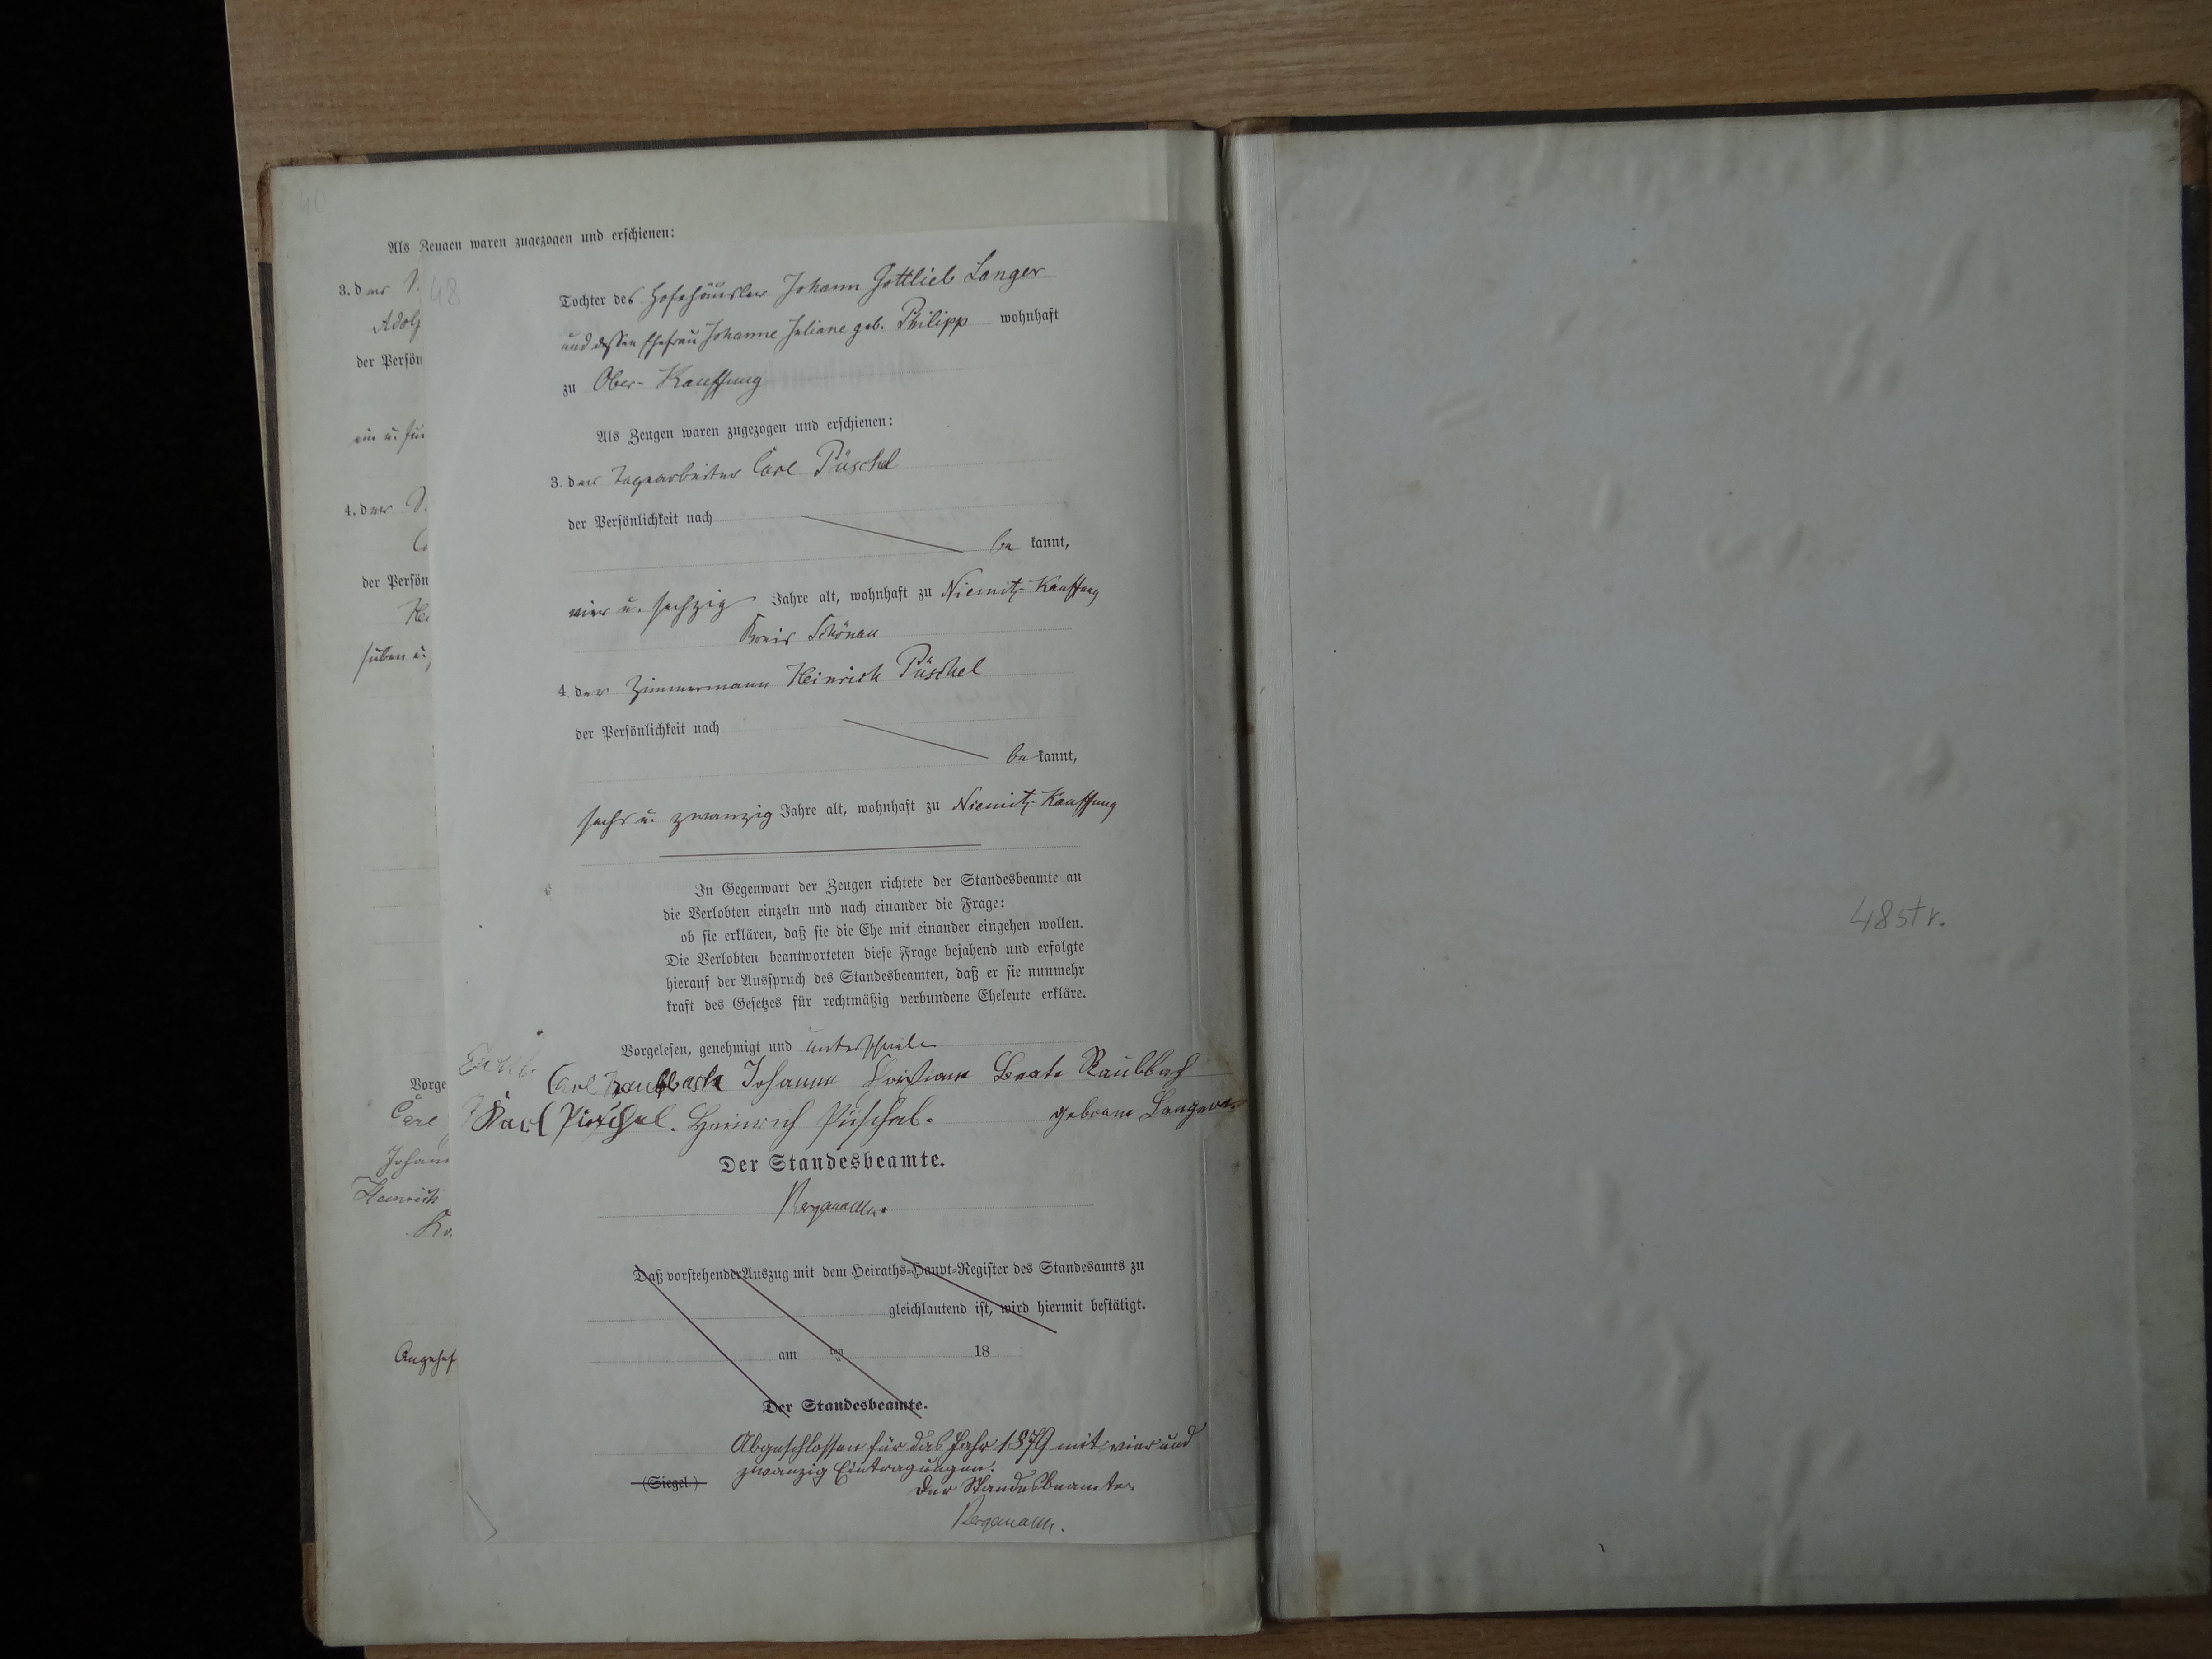 40
Als Zeugen waren zugezogen und erschienen:
3. der
Adolp
der Persön
ein u. fün
4. der
der Persön
Hei
sieben u.
Vorge
Carl
Johann
Heinrich
Angehef
48
Tochter des Hofehäusler Johann Gottlieb Langer
und dessen Ehefrau Johanne Juliane geb. Philipp wohnhaft
zu Ober-Kauffung
Als Zeugen waren zugezogen und erschienen:
3. der Tagearbeiter Carl Püschel
der Persönlichkeit nach
be kannt,
vier u. sechzig Jahre alt, wohnhaft zu Niemitz-Kauffung
Kreis Schönau
4. der Zimmermann Heinrich Püschel
der Persönlichkeit nach
be kannt,
sechs u. zwanzig Jahre alt, wohnhaft zu Niemitz-Kauffung
In Gegenwart der Zeugen richtete der Standesbeamte an
die Verlobten einzeln und nach einander die Frage:
ob sie erklären, daß sie die Ehe mit einander eingehen wollen.
Die Verlobten beantworteten diese Frage bejahend und erfolgte
hierauf der Ausspruch des Standesbeamten, daß er sie nunmehr
kraft des Gesetzes für rechtmäßig verbundene Eheleute erkläre.
Vorgelesen, genehmigt und unterschrieben
Carl Raubbach Johanne Christiane Beate Raubbach
Karl Püschel. Heinrich Püschel. geborene Langer
Der Standesbeamte.
Bergmann.
Daß vorstehender Auszug mit dem Heiraths-Haupt-Register des Standesamts zu
gleichlautend ist, wird hiermit bestätigt.
am ten 18
Der Standesbeamte.
Abgeschlossen für das Jahr 1879 mit vier und
zwanzig Eintragungen.
(Siegel.)
Der Standesbeamte.
Bergmann.
48 str.